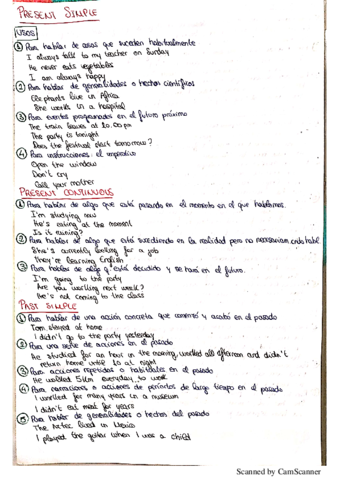 PRESENT SIMPLE
USOS
① Para hablar de cosas que suceden habitualmente
I always talk to my teacher on Sunday
He never eats vegetables
I am always happy
② Para hablar de generalidades o hechos científicos
Elephants live in Africa
She works in a hospital
③ Para eventos programados en el futuro próximo
The train leaves at 10.00 pm
The party is tonight
Does the festival start tomorrow?
④ Para instrucciones. el imperativo
Open the window
Don't cry
Call your mother
PRESENT CONTINUOUS
① Para hablar de algo que está pasando en el momento en el que hablamos.
I'm studying now
He's eating at the moment
Is it raining?
② Para hablar de algo que está sucediendo en la realidad pero no necesariam
She's currently looking for a job
They're learning English
③ Para hablar de algo q está decidido y se hará en el futuro.
I'm going to the party
Are you working next week?
He's not coming to the class
PAST SIMPLE
① Para hablar de una acción concreta que comenzó y acabó en el pasado
Tom stayed at home
I didn't go to the party yesterday
② Para una serie de acciones en el pasado
He studied for an hour in the morning, worked all afternoon and didn't
return home until 10 at night
③ Para acciones repetidas o habituales en el pasado
He walked 5km everyday to work
④ Para narraciones o acciones de períodos de largo tiempo en el pasado
I worked for many years in a museum
I didn't eat meat for years
⑤ Para hablar de generalidades o hechos del pasado
The Aztec lived in Mexico
I played the guitar when I was a child
Scanned by CamScanner